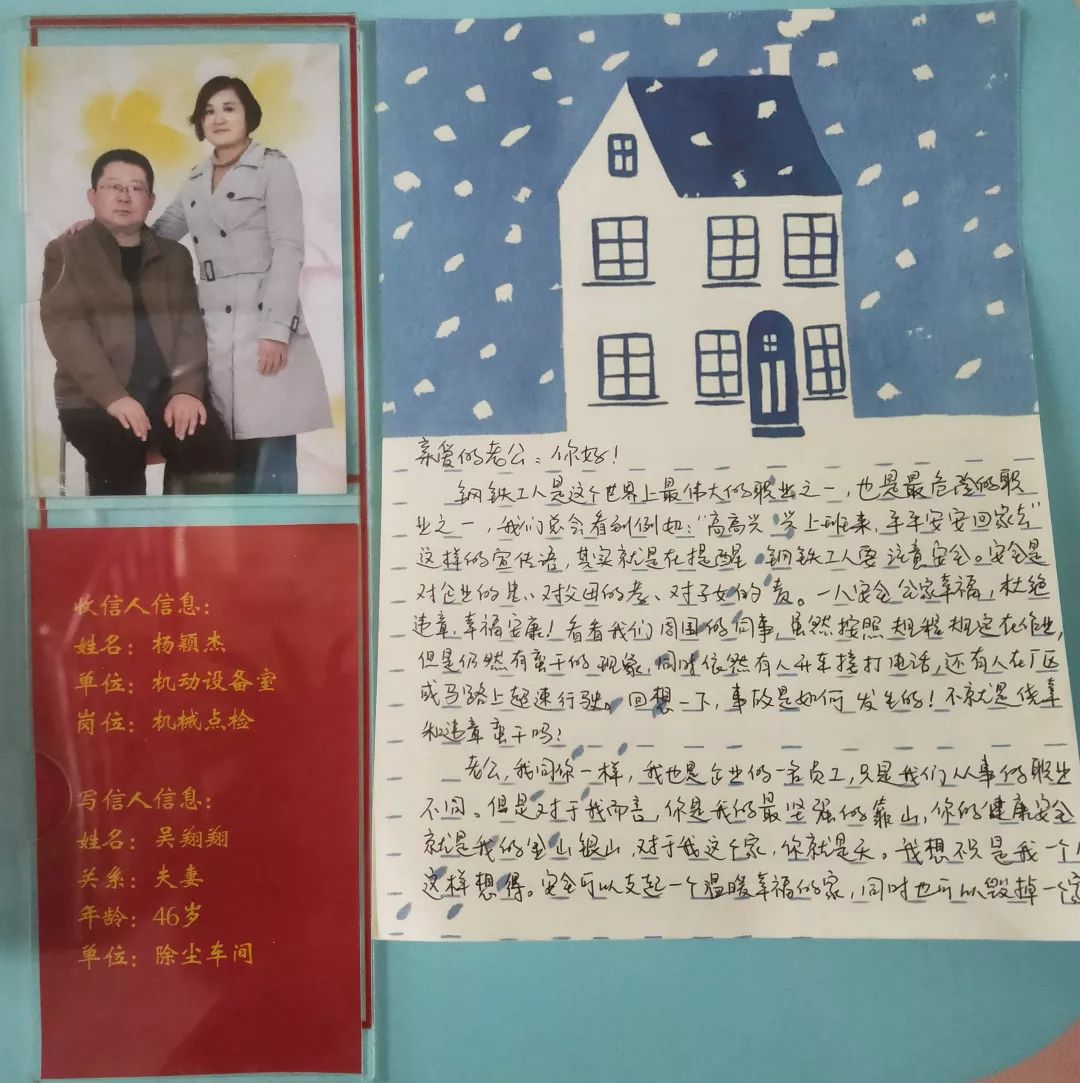 收信人信息：
姓名：杨颖杰
单位：机动设备室
岗位：机械点检
写信人信息：
姓名：吴翔翔
关系：夫妻
年龄：46岁
单位：除尘车间
亲爱的老公：你好！
钢铁工人是这个世界上最伟大的职业之一，也是最危险的职
业之一，我们总会看到例如：“高高兴兴上班来，平平安安回家去”
这样的宣传语，其实就是在提醒钢铁工人要注意安全。安全是
对企业的忠、对父母的孝、对子女的责。一人安全全家幸福，杜绝
违章，幸福安康！看看我们周围的同事，虽然按照规程规定在作业，
但是仍然有蛮干的现象，同时依然有人开车接打电话，还有人在厂区
或马路上超速行驶。回想一下，事故是如何发生的！不就是侥幸
和违章蛮干吗？
老公，我同你一样，我也是企业的一名员工，只是我们从事的职业
不同。但是对于我而言，你是我的最坚强的靠山，你的健康安全
就是我的金山银山，对于我这个家，你就是天。我想不只是我一个人
这样想得。安全可以支起一个温暖幸福的家，同时也可以毁掉一个家